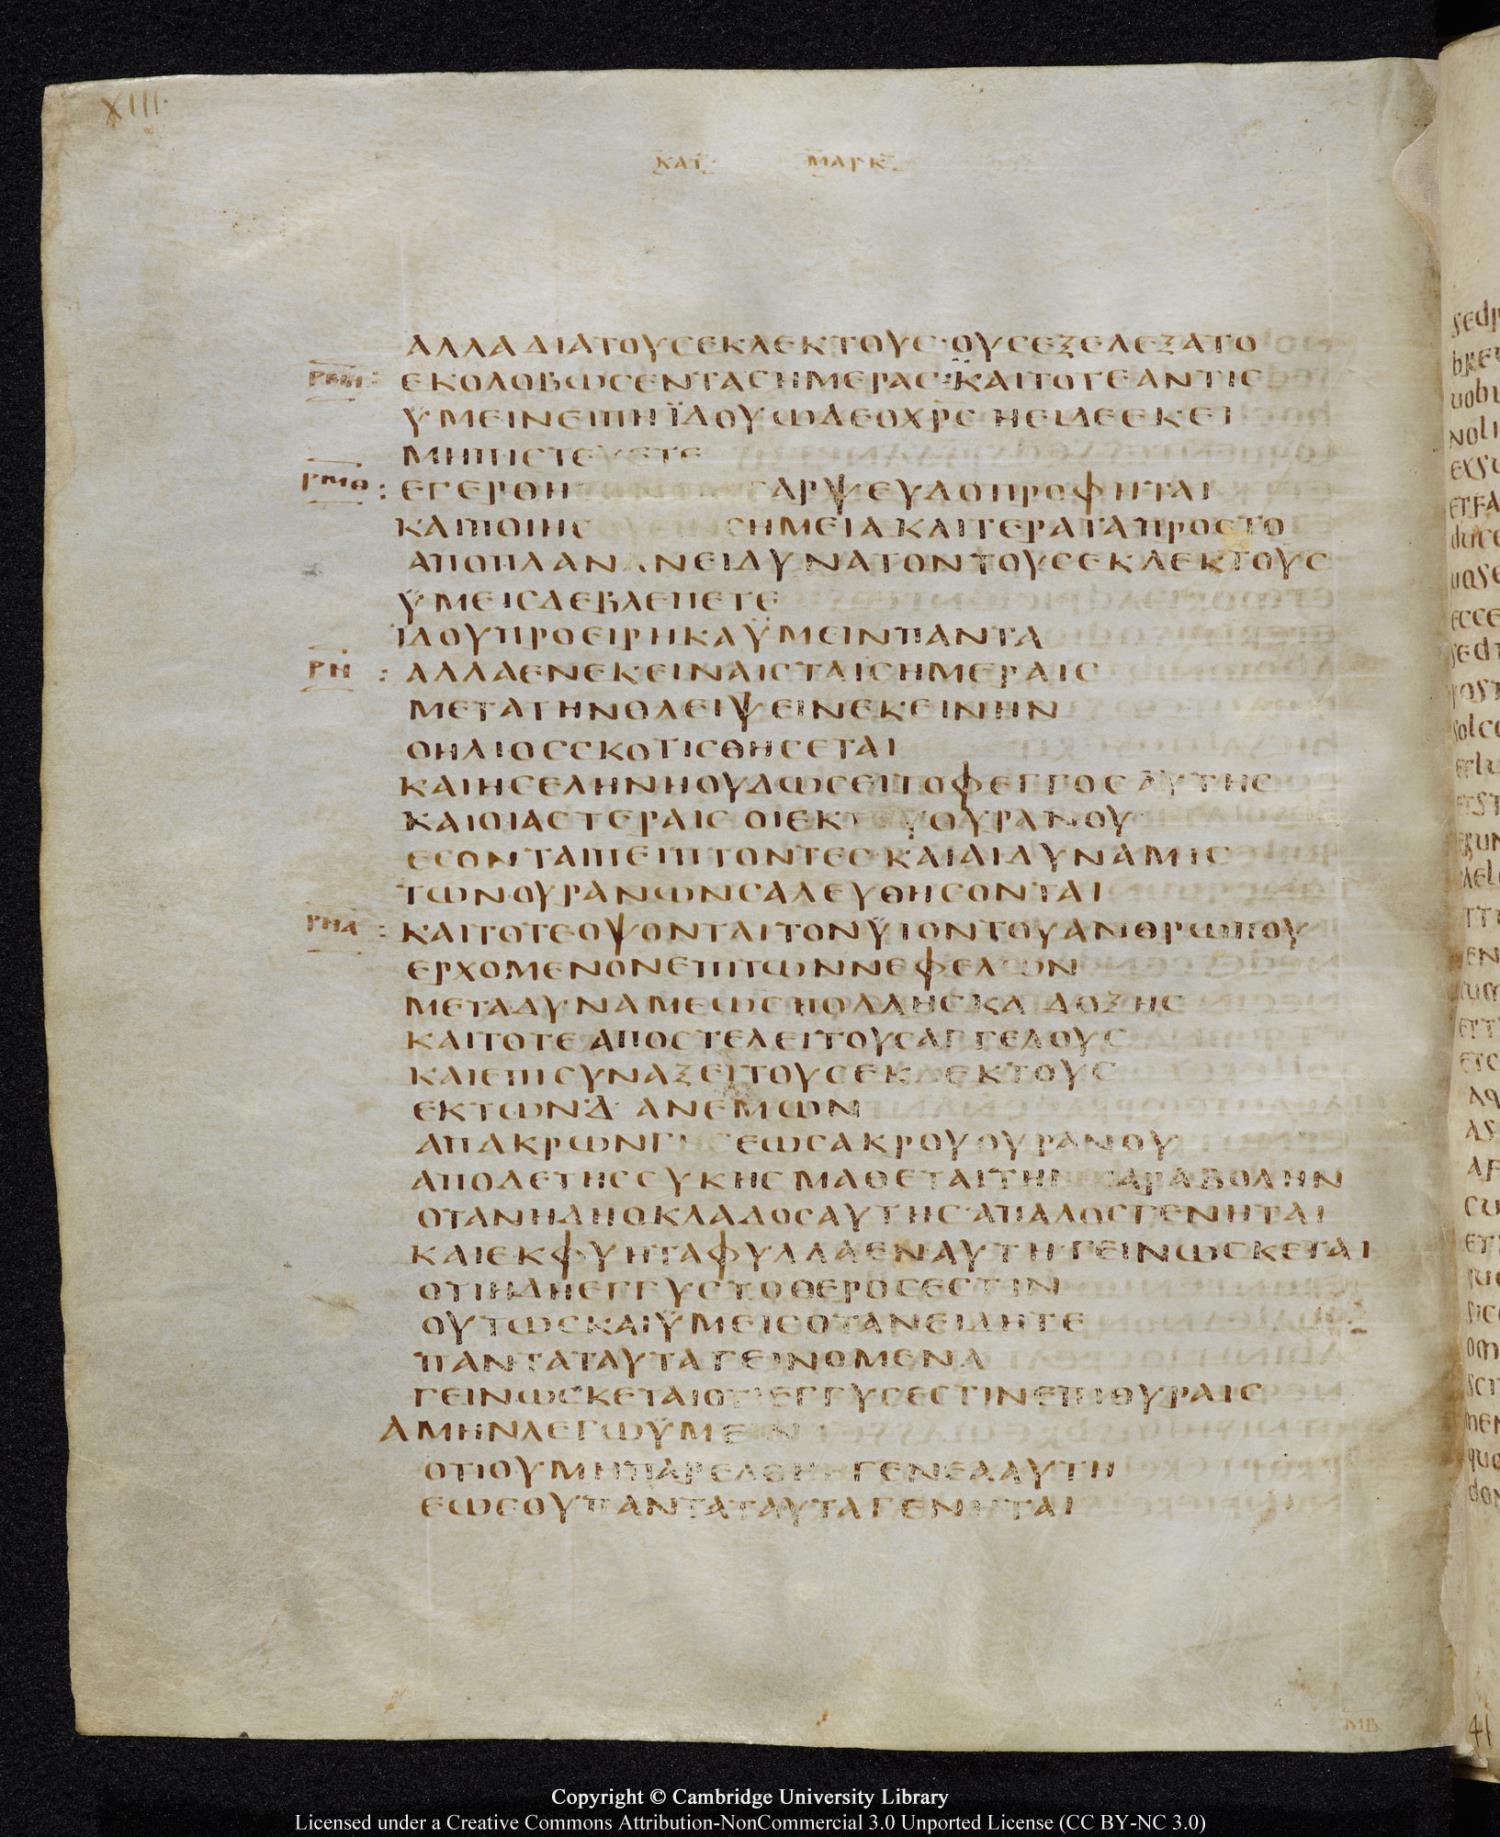 XIII
ΚΑΤ ΜΑΡΚ
ΑΛΛΑΔΙΑΤΟΥΣΕΚΛΕΚΤΟΥΣ·ΟΥΣΕΞΕΛΕΞΑΤΟ
ΡΜΗ : ΕΚΟΛΟΒΩΣΕΝΤΑΣΗΜΕΡΑΣ:ΚΑΙΤΟΤΕΑΝΤΙΣ
ΫΜΕΙΝΕΙΠΗΪΔΟΥΩΔΕΟΧΡΣ ΗΕΙΔΕΕΚΕΙ
ΜΗΠΙΣΤΕΥΕΤΕ
ΡΜΘ : ΕΓΕΡΘΗ ΓΑΡΨΕΥΔΟΠΡΟΦΗΤΑΙ
ΚΑΙΠΟΙΗΣ ΣΗΜΕΙΑΚΑΙΤΕΡΑΤΑΠΡΟΣΤΟ
ΑΠΟΠΛΑΝ ΝΕΙΔΥΝΑΤΟΝΤΟΥΣΕΚΛΕΚΤΟΥΣ
ΫΜΕΙΣΔΕΒΛΕΠΕΤΕ
ΪΔΟΥΠΡΟΕΙΡΗΚΑΫΜΕΙΝΠΑΝΤΑ
ΡΝ : ΑΛΛΑΕΝΕΚΕΙΝΑΙΣΤΑΙΣΗΜΕΡΑΙΣ
ΜΕΤΑΤΗΝΘΛΕΙΨΕΙΝΕΚΕΙΝΗΝ
ΟΗΛΙΟΣΣΚΟΤΙΣΘΗΣΕΤΑΙ
ΚΑΙΗΣΕΛΗΝΗΟΥΔΩΣΕΙΤΟΦΕΓΓΟΣΑΥΤΗΣ
ΚΑΙΟΙΑΣΤΕΡΑΙΣ ΟΙΕΚΤΟΥΟΥΡΑΝΟΥ
ΕΣΟΝΤΑΙΠΕΙΠΤΟΝΤΕΣ·ΚΑΙΑΙΔΥΝΑΜΙΣ
ΤΩΝΟΥΡΑΝΩΝΣΑΛΕΥΘΗΣΟΝΤΑΙ
ΡΝΑ : ΚΑΙΤΟΤΕΟΨΟΝΤΑΙΤΟΝΫΙΟΝΤΟΥΑΝΘΡΩΠΟΥ
ΕΡΧΟΜΕΝΟΝΕΠΙΤΩΝΝΕΦΕΛΩΝ
ΜΕΤΑΔΥΝΑΜΕΩΣΠΟΛΛΗΣΚΑΙΔΟΞΗΣ
ΚΑΙΤΟΤΕΑΠΟΣΤΕΛΕΙΤΟΥΣΑΓΓΕΛΟΥΣ
ΚΑΙΕΠΙΣΥΝΑΞΕΙΤΟΥΣΕΚΛΕΚΤΟΥΣ
ΕΚΤΩΝΔ· ΑΝΕΜΩΝ
ΑΠΑΚΡΩΝΓΗΣΕΩΣΑΚΡΟΥΟΥΡΑΝΟΥ
ΑΠΟΔΕΤΗΣΣΥΚΗΣΜΑΘΕΤΑΙΤΗΝΠΑΡΑΒΟΛΗΝ
ΟΤΑΝΗΔΗΟΚΛΑΔΟΣΑΥΤΗΣ·ΑΠΑΛΟΣΓΕΝΗΤΑΙ
ΚΑΙΕΚΦΥΗΤΑΦΥΛΛΑΕΝΑΥΤΗ·ΓΕΙΝΩΣΚΕΤΑΙ
ΟΤΙΗΔΗΕΓΓΥΣΤΟΘΕΡΟΣΕΣΤΙΝ
ΟΥΤΩΣΚΑΙΫΜΕΙΣΟΤΑΝΕΙΔΗΤΕ
ΠΑΝΤΑΤΑΥΤΑΓΕΙΝΟΜΕΝΑ
ΓΕΙΝΩΣΚΕΤΑΙΟΤΙΕΓΓΥΣΕΣΤΙΝΕΠΙΘΥΡΑΙΣ
ΑΜΗΝΛΕΓΩΫΜΕΙΝ
ΟΤΙΟΥΜΗΠΑΡΕΛΘΗΗΓΕΝΕΑΑΥΤΗ
ΕΩΣΟΥΠΑΝΤΑΤΑΥΤΑΓΕΝΗΤΑΙ
ΜΒ
41
Copyright © Cambridge University Library
Licensed under a Creative Commons Attribution-NonCommercial 3.0 Unported License (CC BY-NC 3.0)